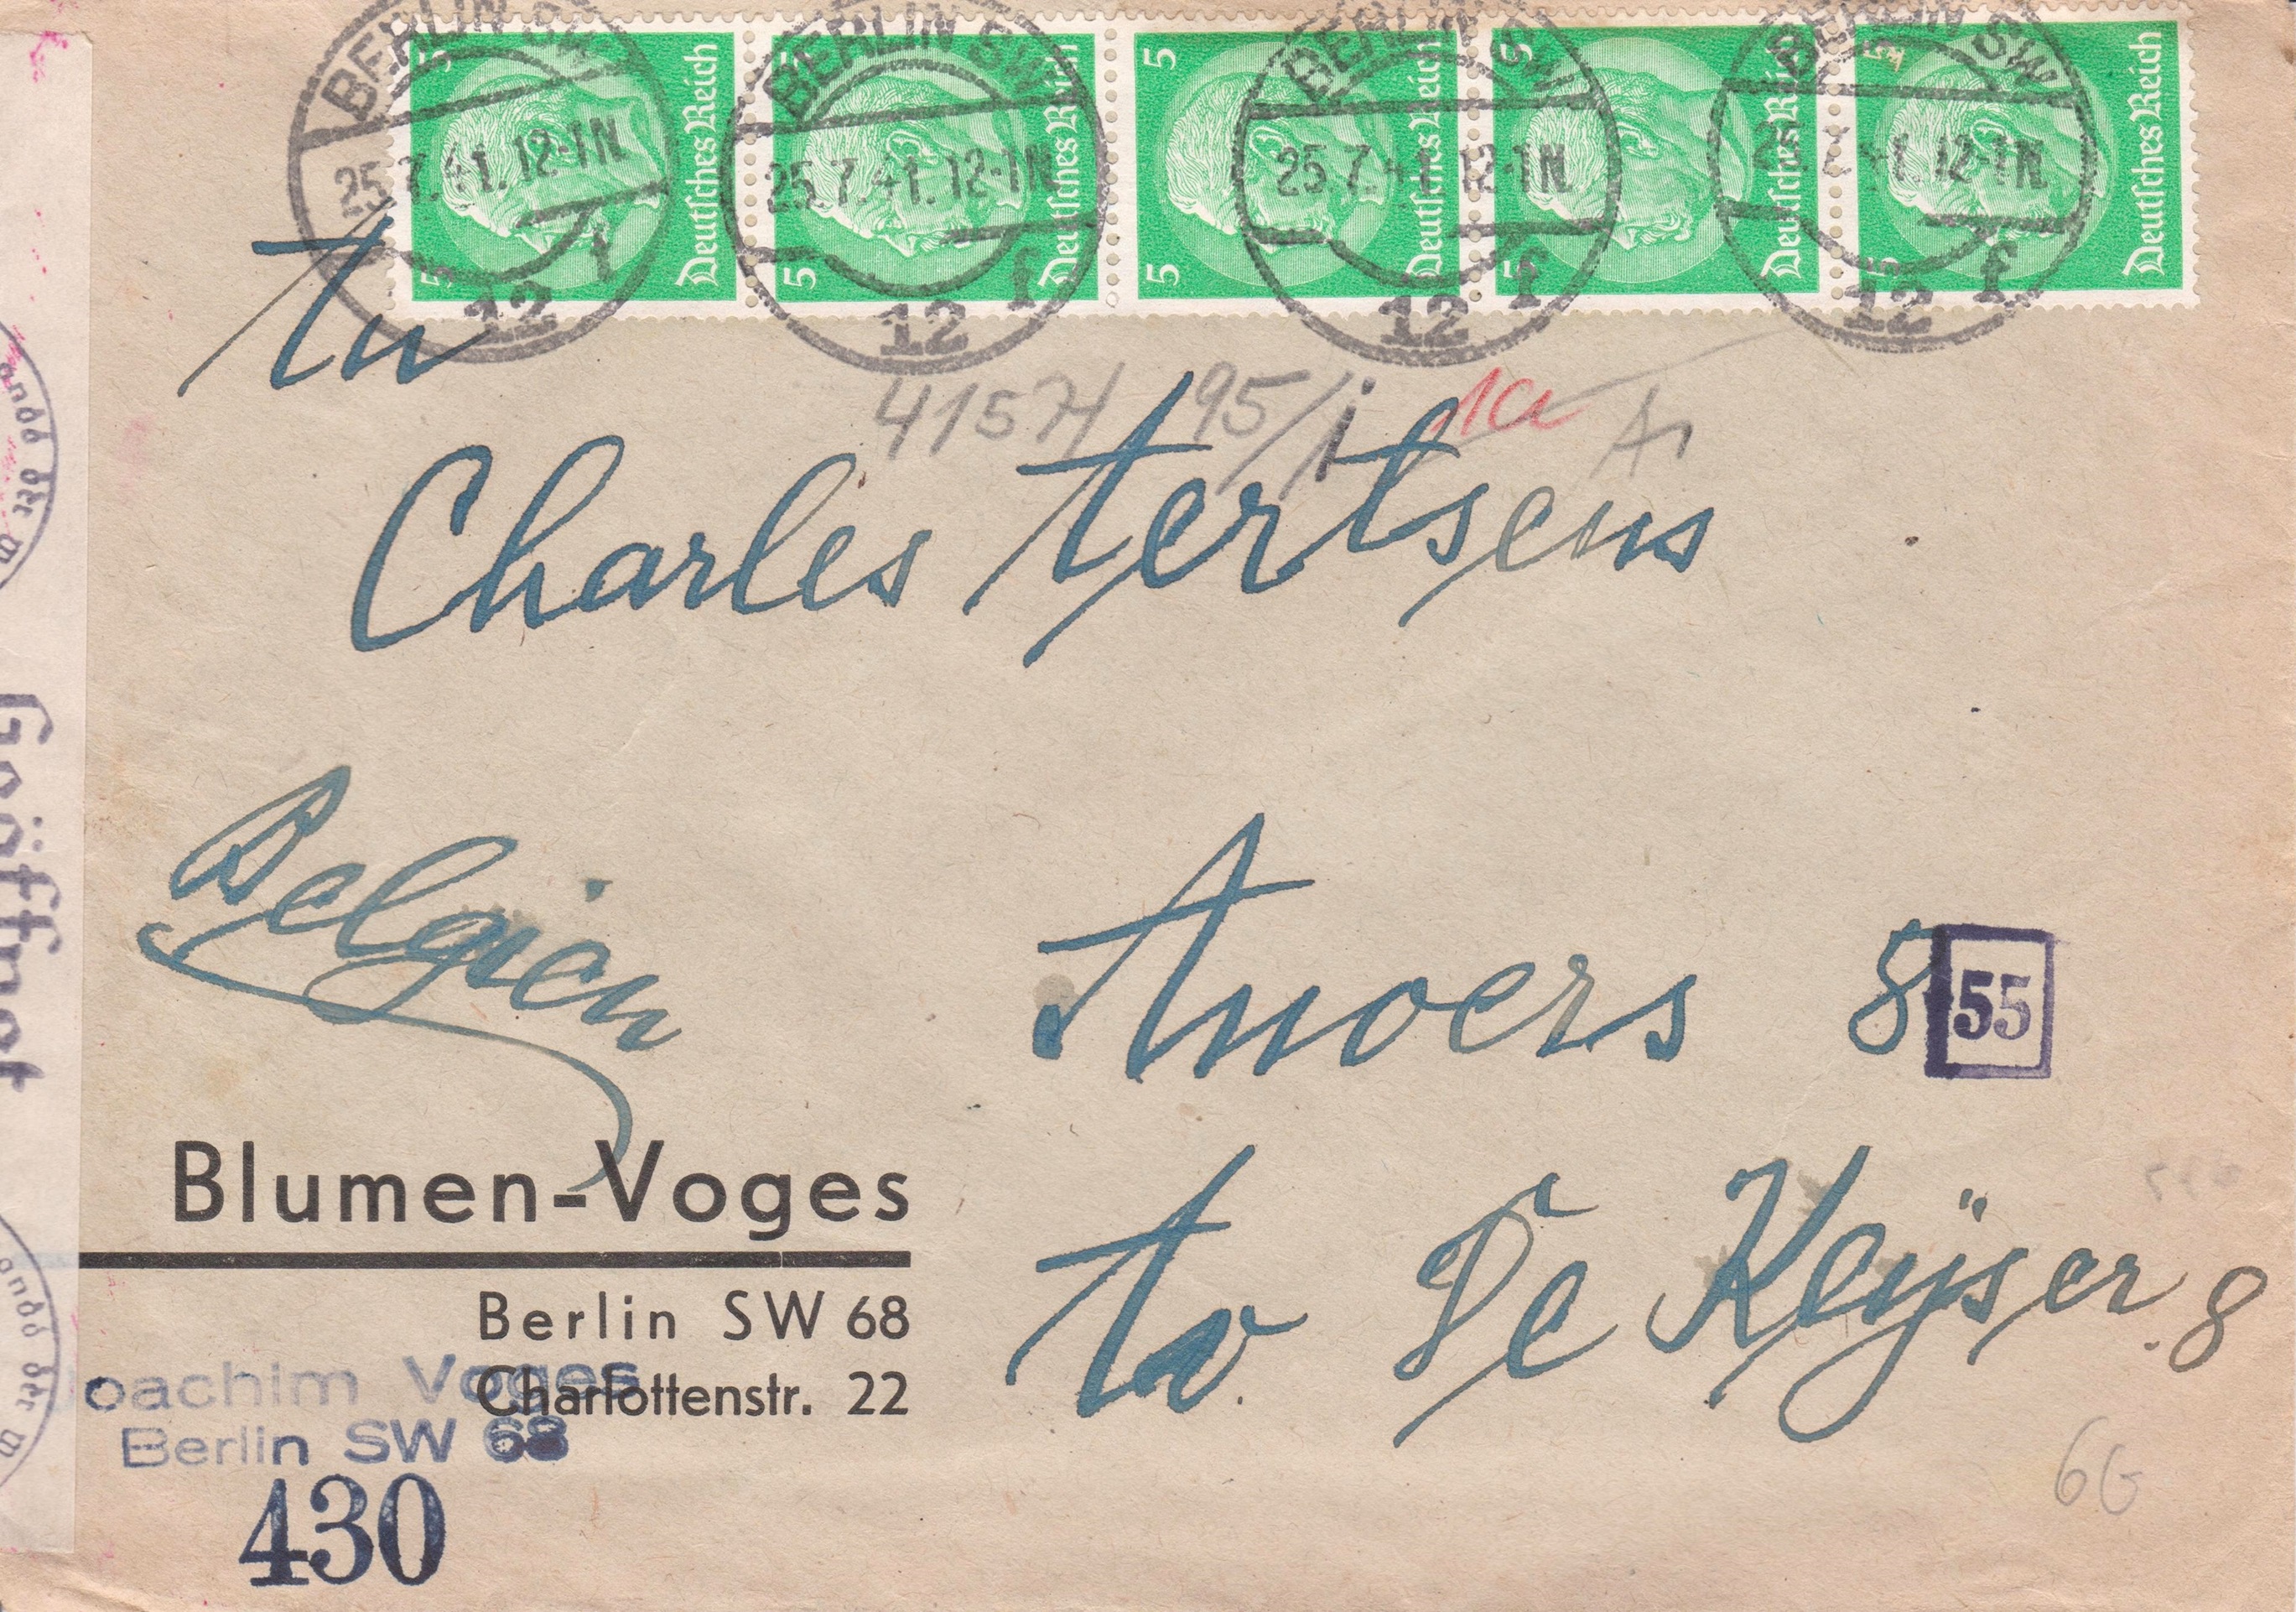 BERLIN SW 25.7.41.12-1N 12 f
BERLIN SW 25.7.41.12-1N 12 f
BERLIN SW 25.7.41.12-1N 12 f
BERLIN SW 25.7.41.12-1N 12 f
5 5 Deutsches Reich
5 5 Deutsches Reich
5 5 Deutsches Reich
5 5 Deutsches Reich
5 5 Deutsches Reich
An
95/
Charles Aertsens
Belgien
Anvers 8
55
Av. De Keÿser 8
Geöffnet
Blumen-Voges
Berlin SW 68
Charlottenstr. 22
oachim Voges
Berlin SW 68
430